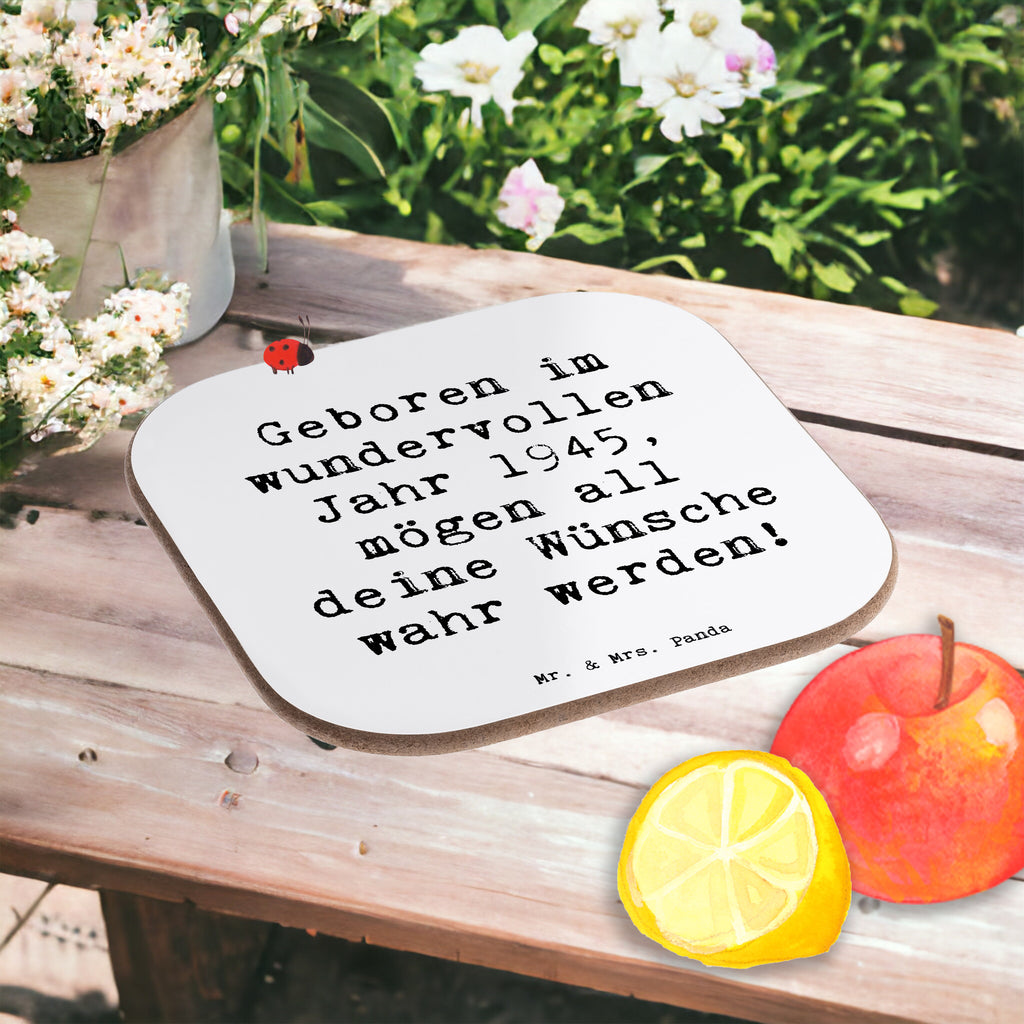 Geboren im
wundervollen
Jahr 1945,
mögen all
deine Wünsche
wahr werden!
Mr. & Mrs. Panda